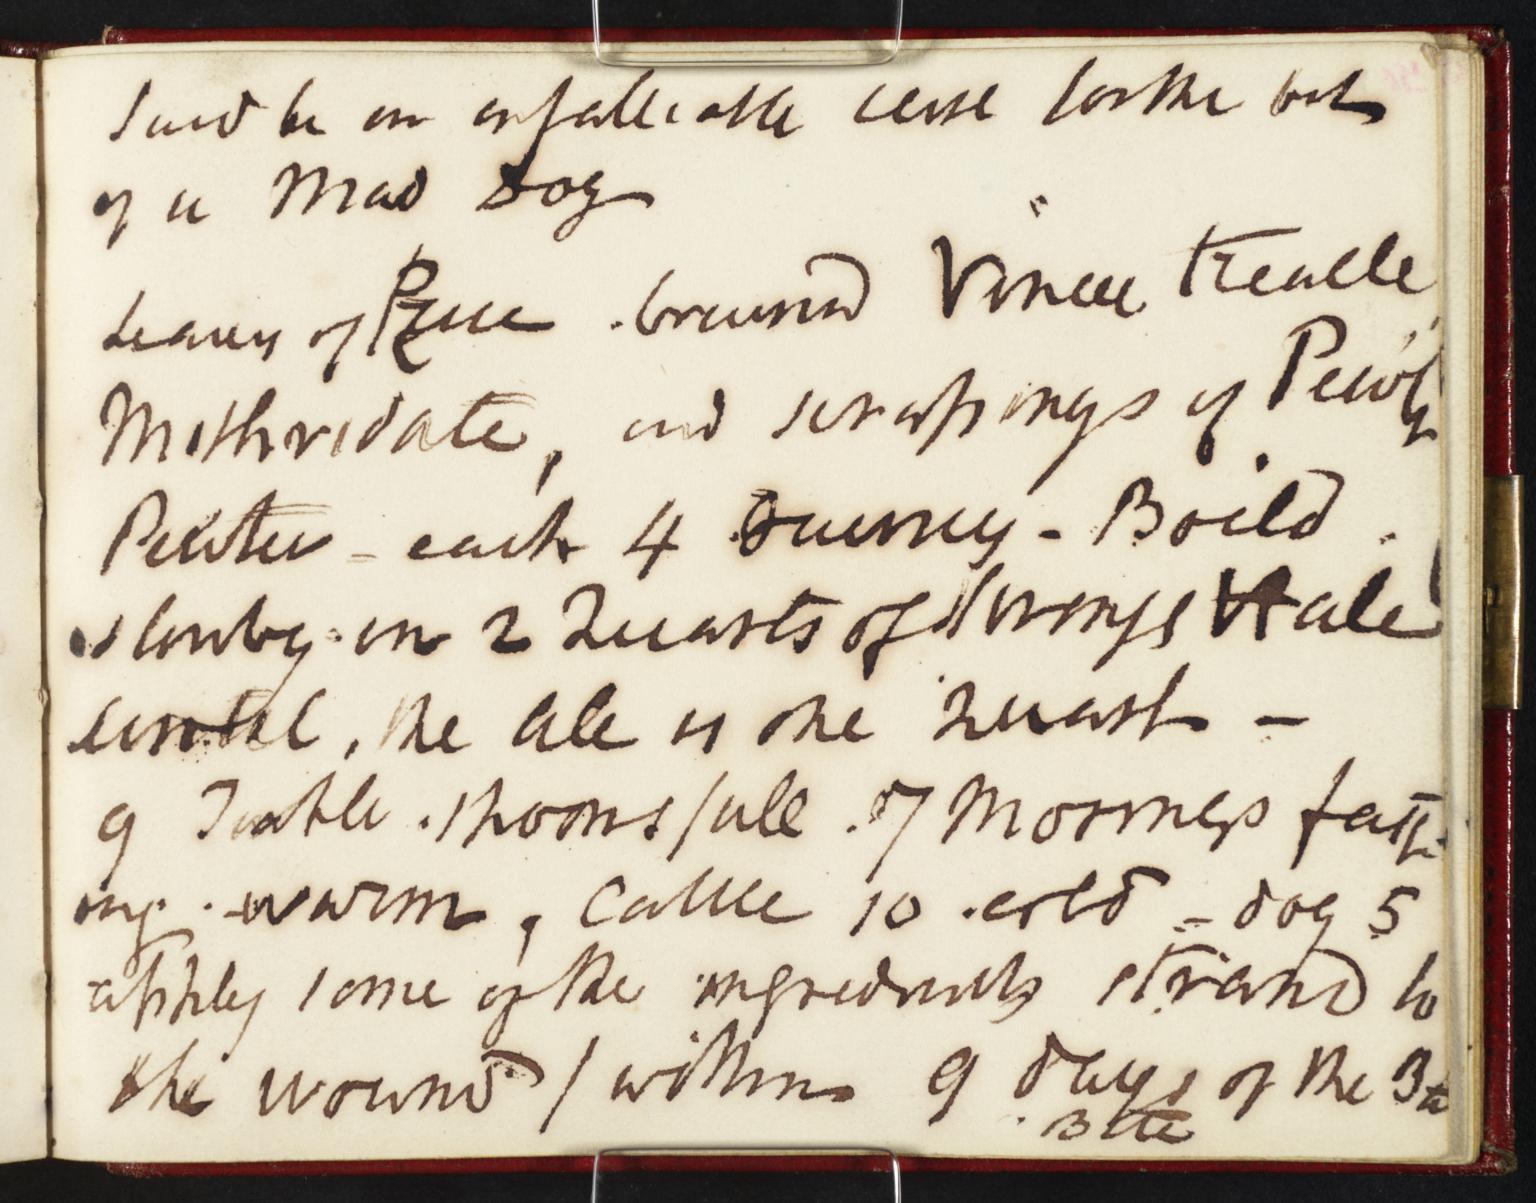 Said to be an infalliable cure for the bite
of a Mad Dog
Leaves of Rue bruised Venice treacle
Mithridate, and scrapings of
Pewter - each 4 Ounces - Boild
slowly in 2 Quarts of Strong ale
until, the ale is one Quart -
9 Table spoons full 7 Mornings fast
ing warm, Cattle 10 cold - dog 5
apply some of the ingredients strand to
the wound / within 9 days of the Bite
Bite